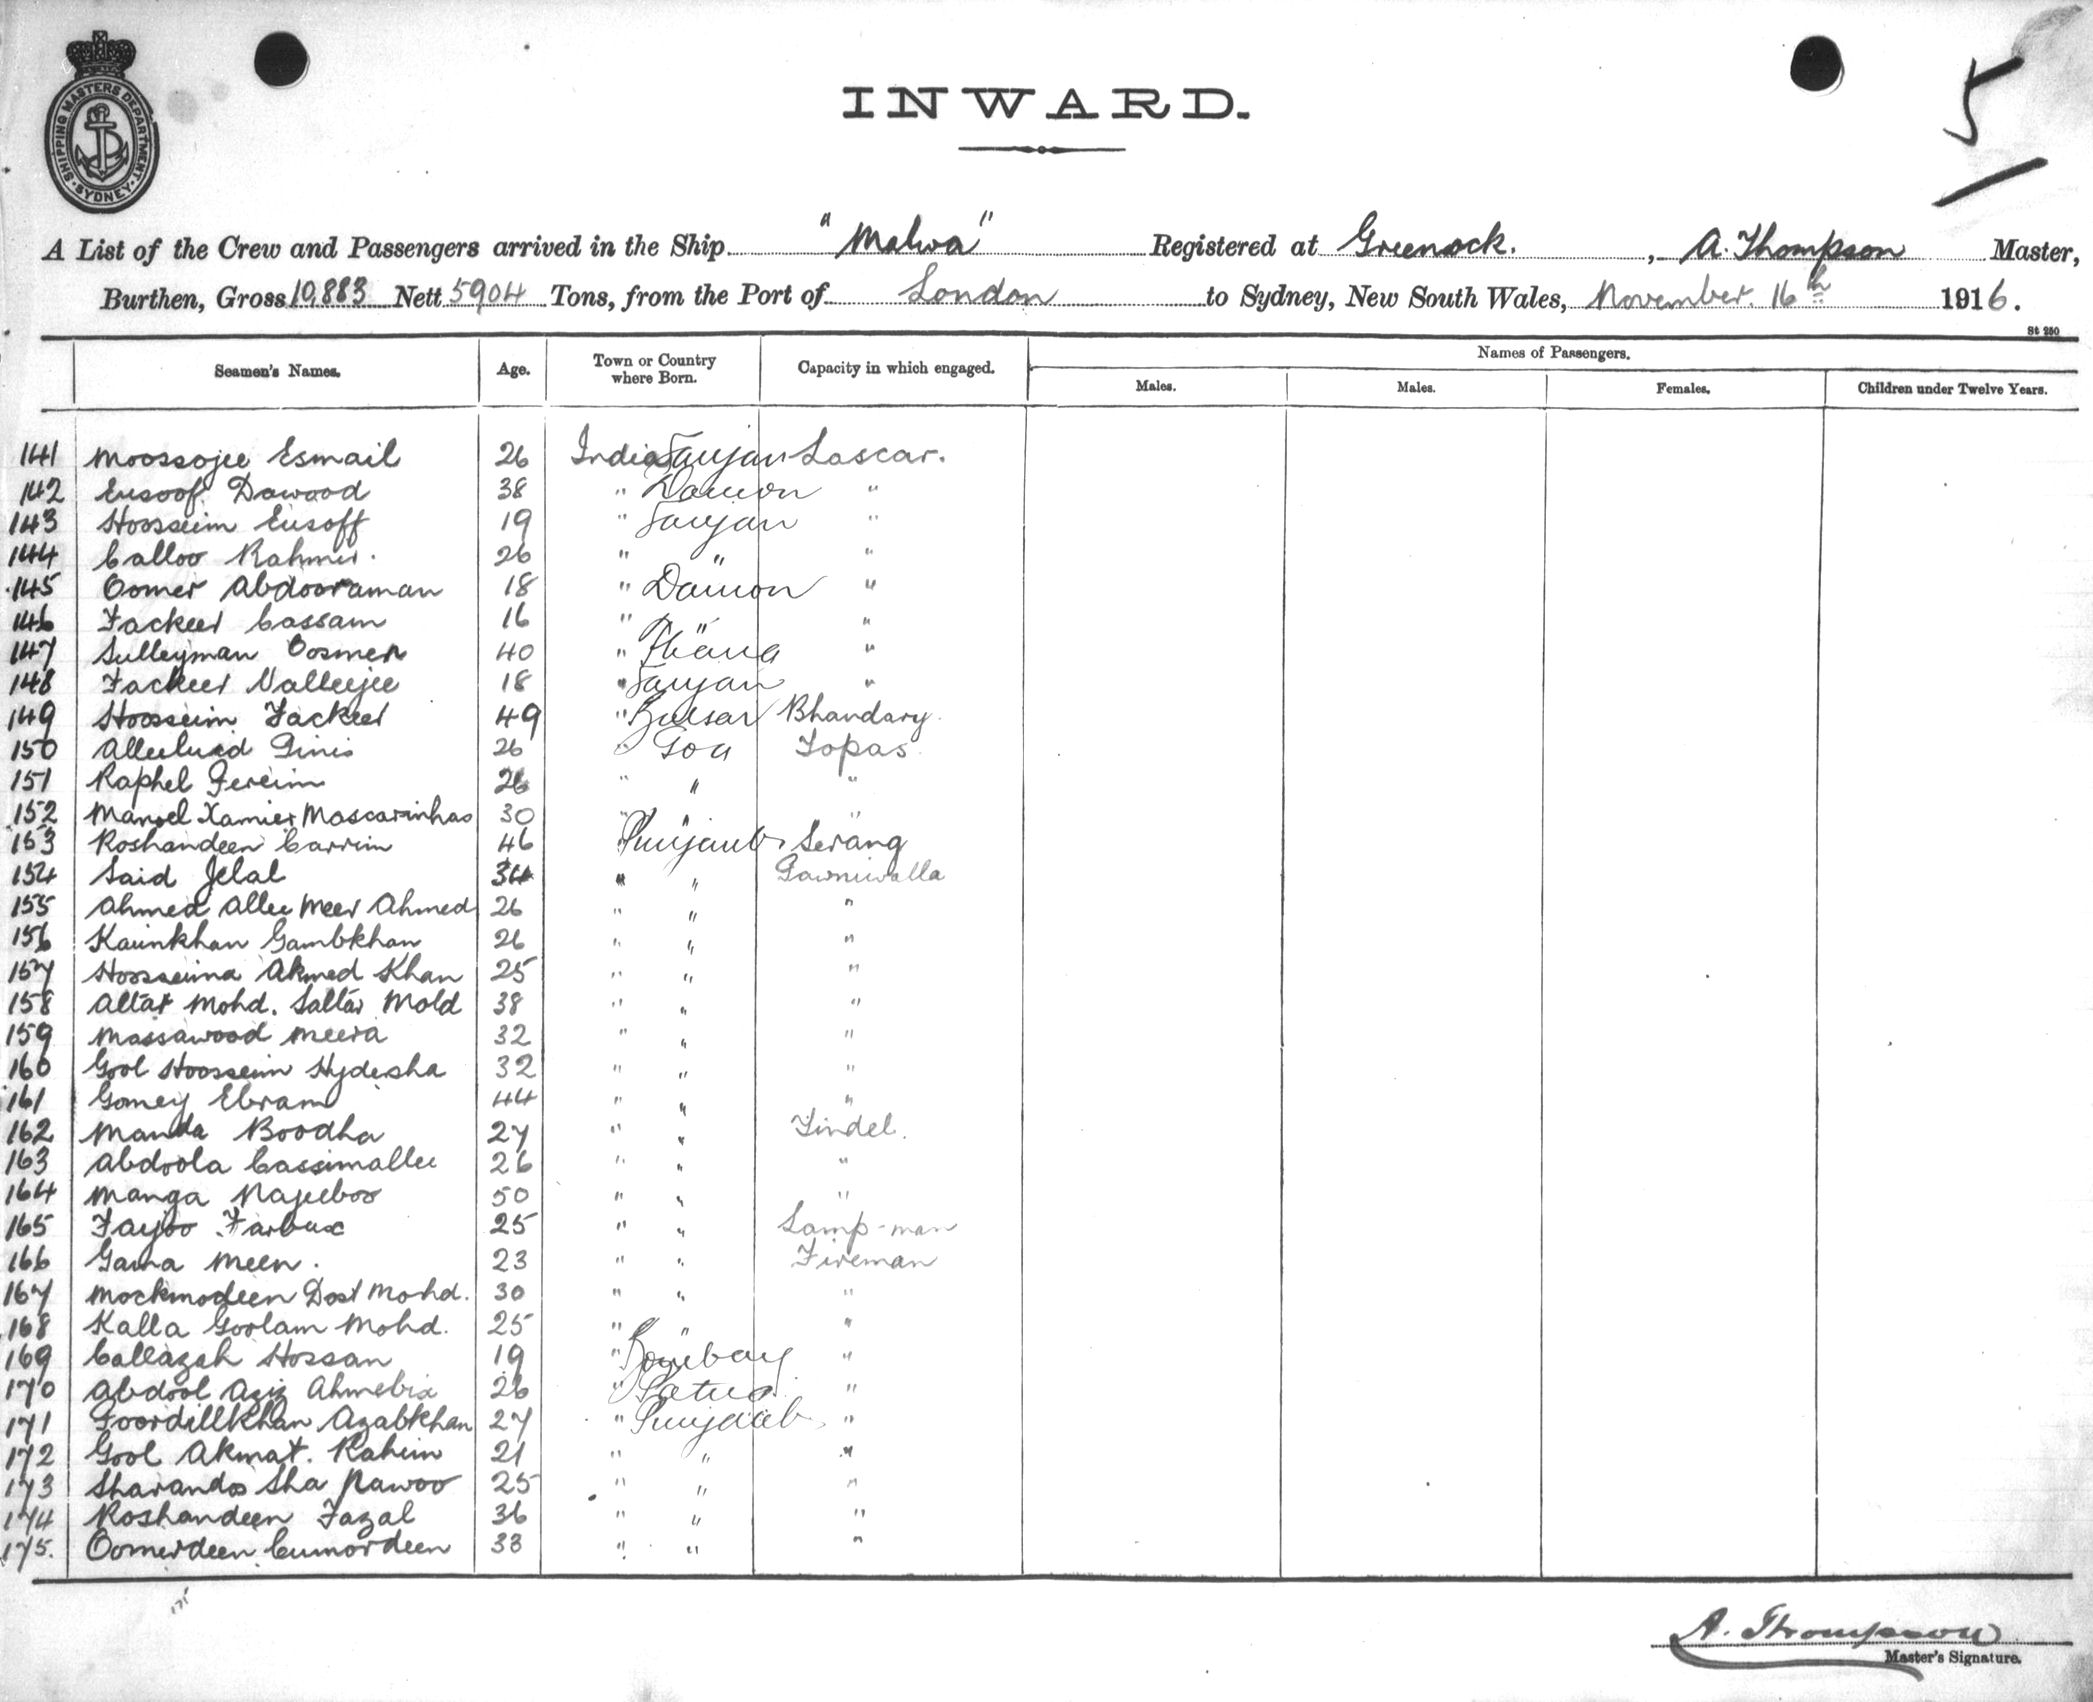 SHIPPING MASTERS DEPARTMENT · SYDNEY ·
INWARD.
5
A List of the Crew and Passengers arrived in the Ship "Malwa" Registered at Greenock. , A. Thompson Master,
Burthen, Gross 10,883 Nett 5904 Tons, from the Port of London to Sydney, New South Wales, November 16th 1916.
St 250
Seamen's Names. Age. Town or Country where Born. Capacity in which engaged. Names of Passengers.
Males. Males. Females. Children under Twelve Years.
141 Moossojee Esmail 26 India Sanjan Lascar.
142 Eusoof Dawood 38 " Damon "
143 Hoosseim Eusoff 19 " Sanjan "
144 Calloo Rahmu. 26 " " "
145 Oomer Abdooraman 18 " Damon "
146 Fackeer Cassam 16 " " "
147 Sulleyman Oosmen 40 " Thana "
148 Fackeer Valleejee 18 " Sanjan "
149 Hoosseim Fackeer 49 " Bulsar Bhandary.
150 Dinis 26 " Goa Topas
151 Raphel Fereim 26 " " "
152 Manoel Xamier Mascarinhas 30 " " "
153 Roshandeen Carrim 46 " Punjaub Serang
154 Said Jelal 34 " "
155 Ahmed Allee Meer Ahmed 26 " " "
156 Kaimkhan Gambkhan 26 " " "
157 Hoosseina Akmed Khan 25 " " "
158 Altar Mohd. Sattar Mold 38 " " "
159 Massawood Meera 32 " " "
160 Gool Hoosseim Hydersha 32 " " "
161 Gomey Ebram 44 " " "
162 Manda Boodha 27 " " Tindel.
163 Abdoola Cassimallee 26 " " "
164 Manga Najeeboo 50 " " "
165 Fayjoo Farbux 25 " " Lamp-man
166 Gama Meen. 23 " " Fireman
167 Mockmodeen Dost Mohd. 30 " " "
168 Kalla Goolam Mohd. 25 " " "
169 Callazah Hossan 19 " Bombay "
170 Abdool Aziz Ahmebix 26 " "
171 Foordillkhan Azabkhan 27 " Punjaub "
172 Gool Akmat. Rahim 21 " " "
173 Sharandos Sha Nawoo 25 " " "
174 Roshandeen Fazal 36 " " "
175. Oomerdeen Cumordeen 33 " " "
A. Thompson
Master's Signature.